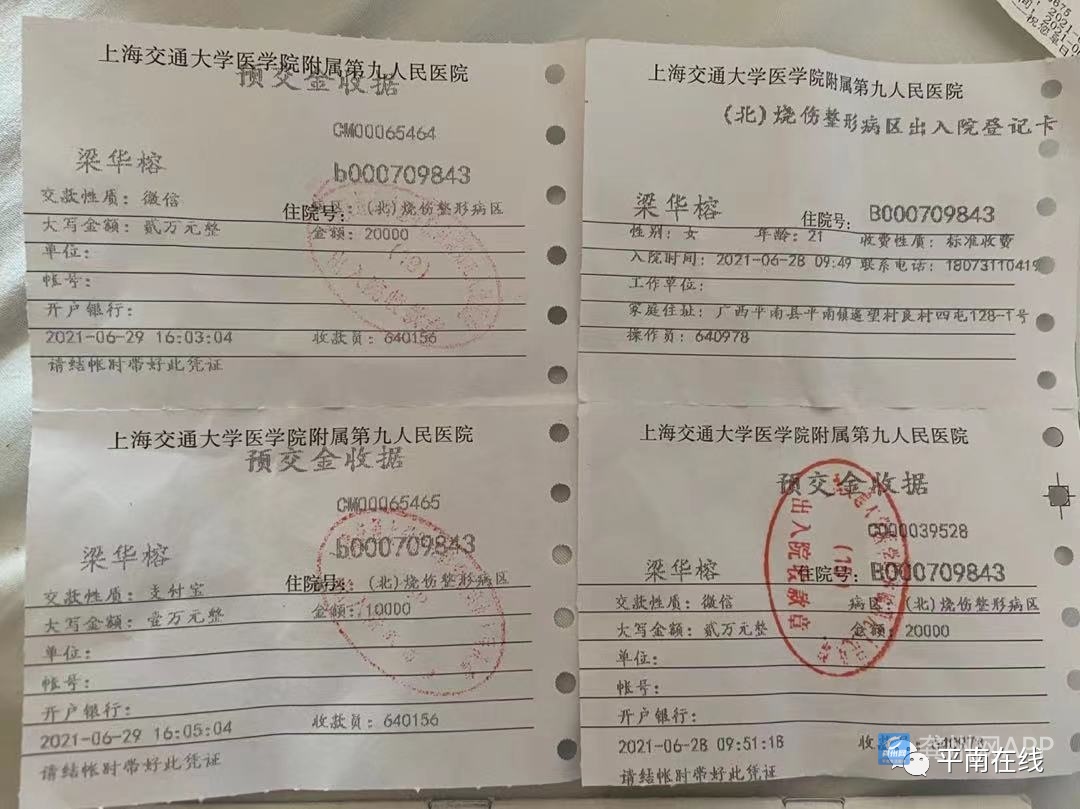 上海交通大学医学院附属第九人民医院
预交金收据
CM00065464
梁华榕
b000709843
交款性质：微信
住院号：
(北)烧伤整形病区
大写金额：贰万元整
金额：20000
单位：
帐号：
开户银行：
2021-06-29 16:03:04
收款员：640156
请结帐时带好此凭证
上海交通大学医学院附属第九人民医院
(北)烧伤整形病区出入院登记卡
梁华榕
住院号：
B000709843
性别：女
年龄：21
收费性质：标准收费
入院时间：2021-06-28 09:49 联系电话：18073110419
工作单位：
家庭住址：广西平南县平南镇遥望村良村四屯128-1号
操作员：640978
上海交通大学医学院附属第九人民医院
预交金收据
CM00065465
梁华榕
b000709843
交款性质：支付宝
住院号：
(北)烧伤整形病区
大写金额：壹万元整
金额：10000
单位：
帐号：
开户银行：
2021-06-29 16:05:04
收款员：640156
请结帐时带好此凭证
上海交通大学医学院附属第九人民医院
预交金收据
C000039528
梁华榕
住院号：
B000709843
交款性质：微信
病区：(北)烧伤整形病区
大写金额：贰万元整
金额：20000
单位：
帐号：
开户银行：
2021-06-28 09:51:18
请结帐时带好此凭证
出入院收款章
龚州网APP
平南在线